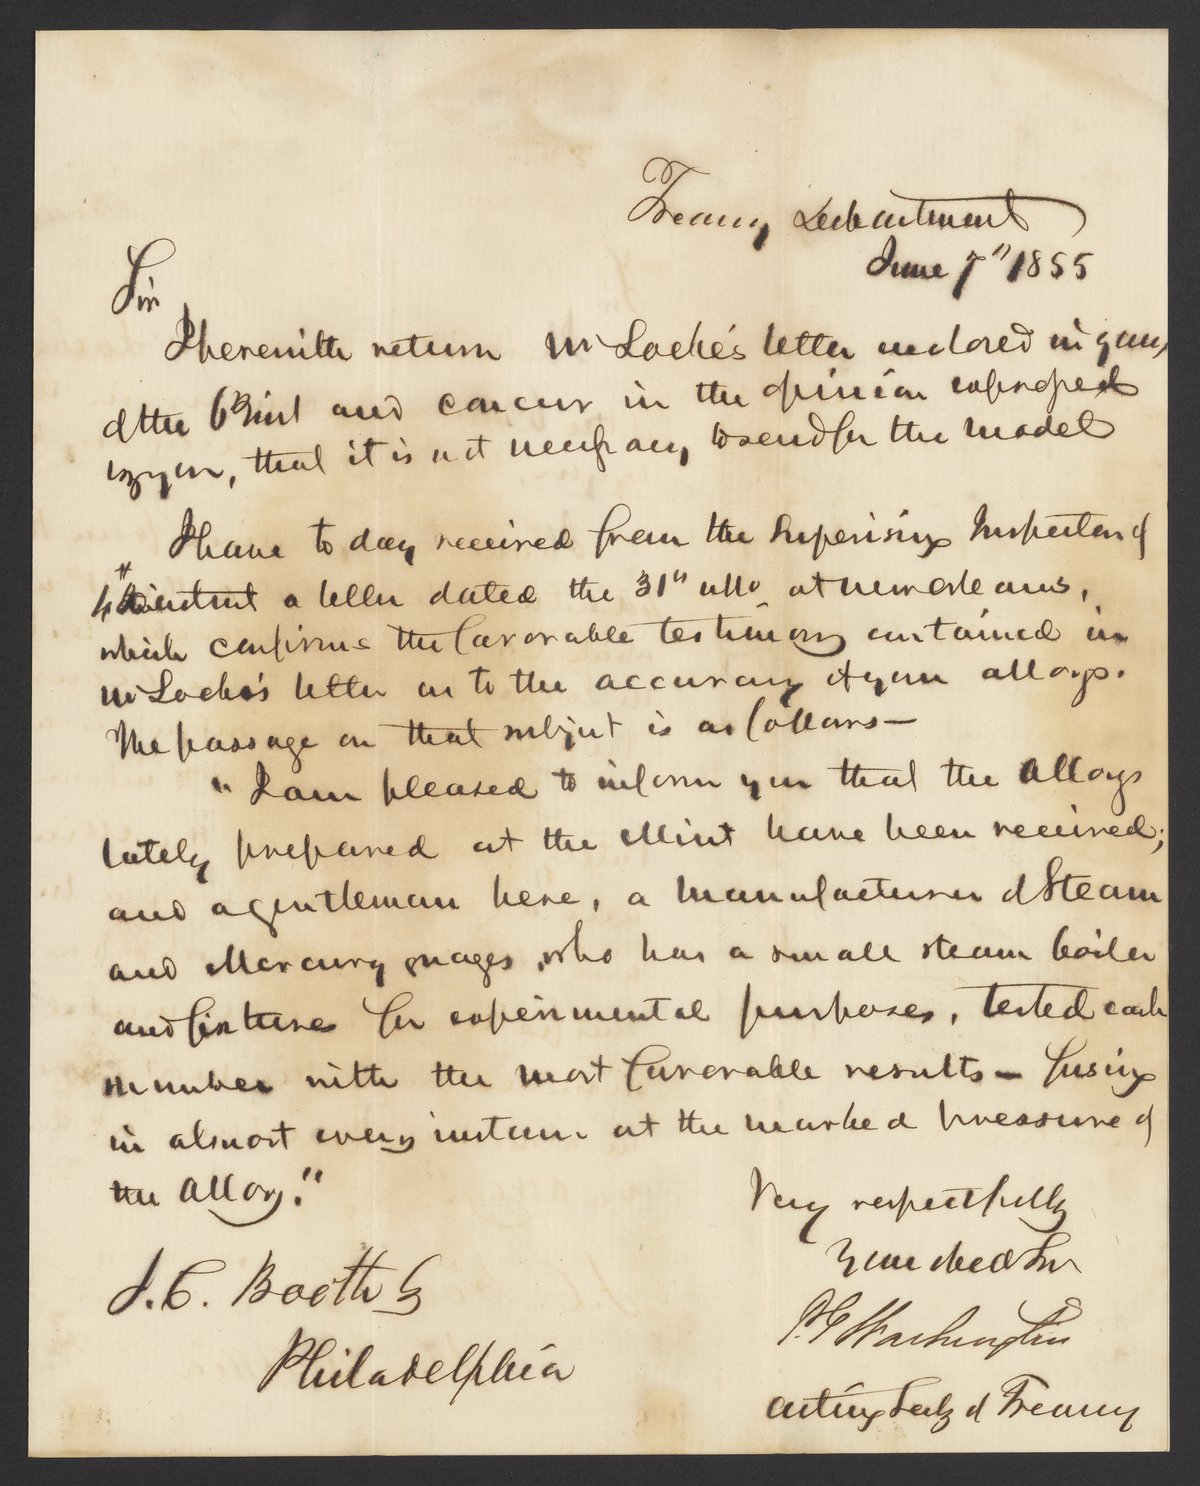 Treasury Department
June 7" 1855
Sir
I herewith return Mr Locke's letter enclosed in yours
of the 6th inst and concur in the opinion expressed
by you, that it is not necessary to send for the model
I have to day received from the Supervising Inspector of
4th district a letter dated the 31" ulto at new orleans,
which confirms the favorable testimony contained in
Mr Locke's letter as to the accuracy of your alloys.
The passage on that subject is as follows—
"I am pleased to inform you that the Alloys
lately prepared at the Mint have been received;
and a gentleman here, a manufacturer of Steam
and Mercury guages, who has a small steam boiler
and fixtures for experimental purposes, tested each
number with the most favorable results— fusing
in almost every instance at the marked pressure of
the Alloy."
Very respectfully
Your Obed Svr
P G Washington
Acting Secty of Treasury
J. C. Booth Esq
Philadelphia